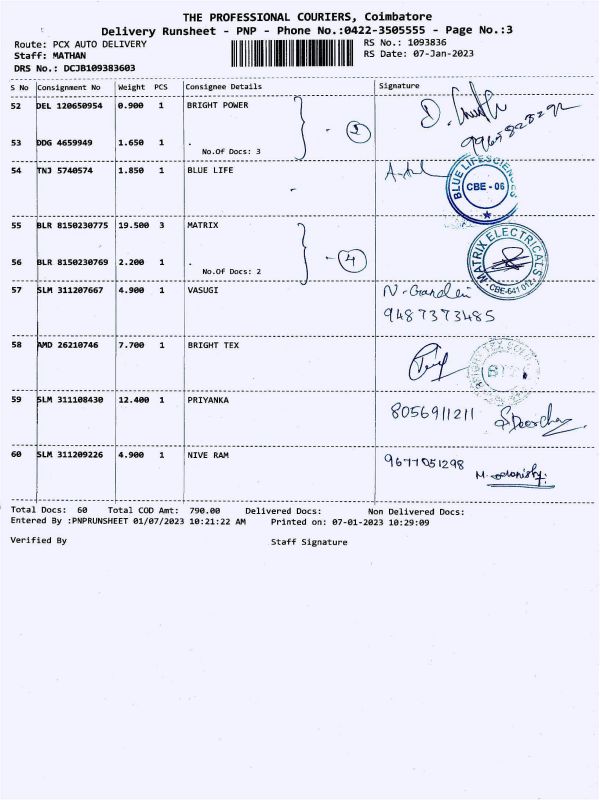 THE PROFESSIONAL COURIERS, Coimbatore
Delivery Runsheet - PNP - Phone No.:0422-3505555 - Page No.:3
Route: PCX AUTO DELIVERY
RS No.: 1093836
Staff: MATHAN
RS Date: 07-Jan-2023
DRS No.: DCJB109383603
S No Consignment No Weight PCS Consignee Details Signature
52 DEL 120650954 0.900 1 BRIGHT POWER
2
53 DDG 4659949 1.650 1 .
No.Of Docs: 3
54 TNJ 5740574 1.850 1 BLUE LIFE
BLUE LIFESCIENCES
CBE - 06
55 BLR 8150230775 19.500 3 MATRIX
56 BLR 8150230769 2.200 1 .
4
No.Of Docs: 2
MATRIX ELECTRICALS
CBE-641 012
57 SLM 311207667 4.900 1 VASUGI
9487373485
58 AMD 26210746 7.700 1 BRIGHT TEX
59 SLM 311108430 12.400 1 PRIYANKA
8056911211
60 SLM 311209226 4.900 1 NIVE RAM
9677051298
Total Docs: 60 Total COD Amt: 790.00 Delivered Docs: Non Delivered Docs:
Entered By :PNPRUNSHEET 01/07/2023 10:21:22 AM Printed on: 07-01-2023 10:29:09
Verified By Staff Signature